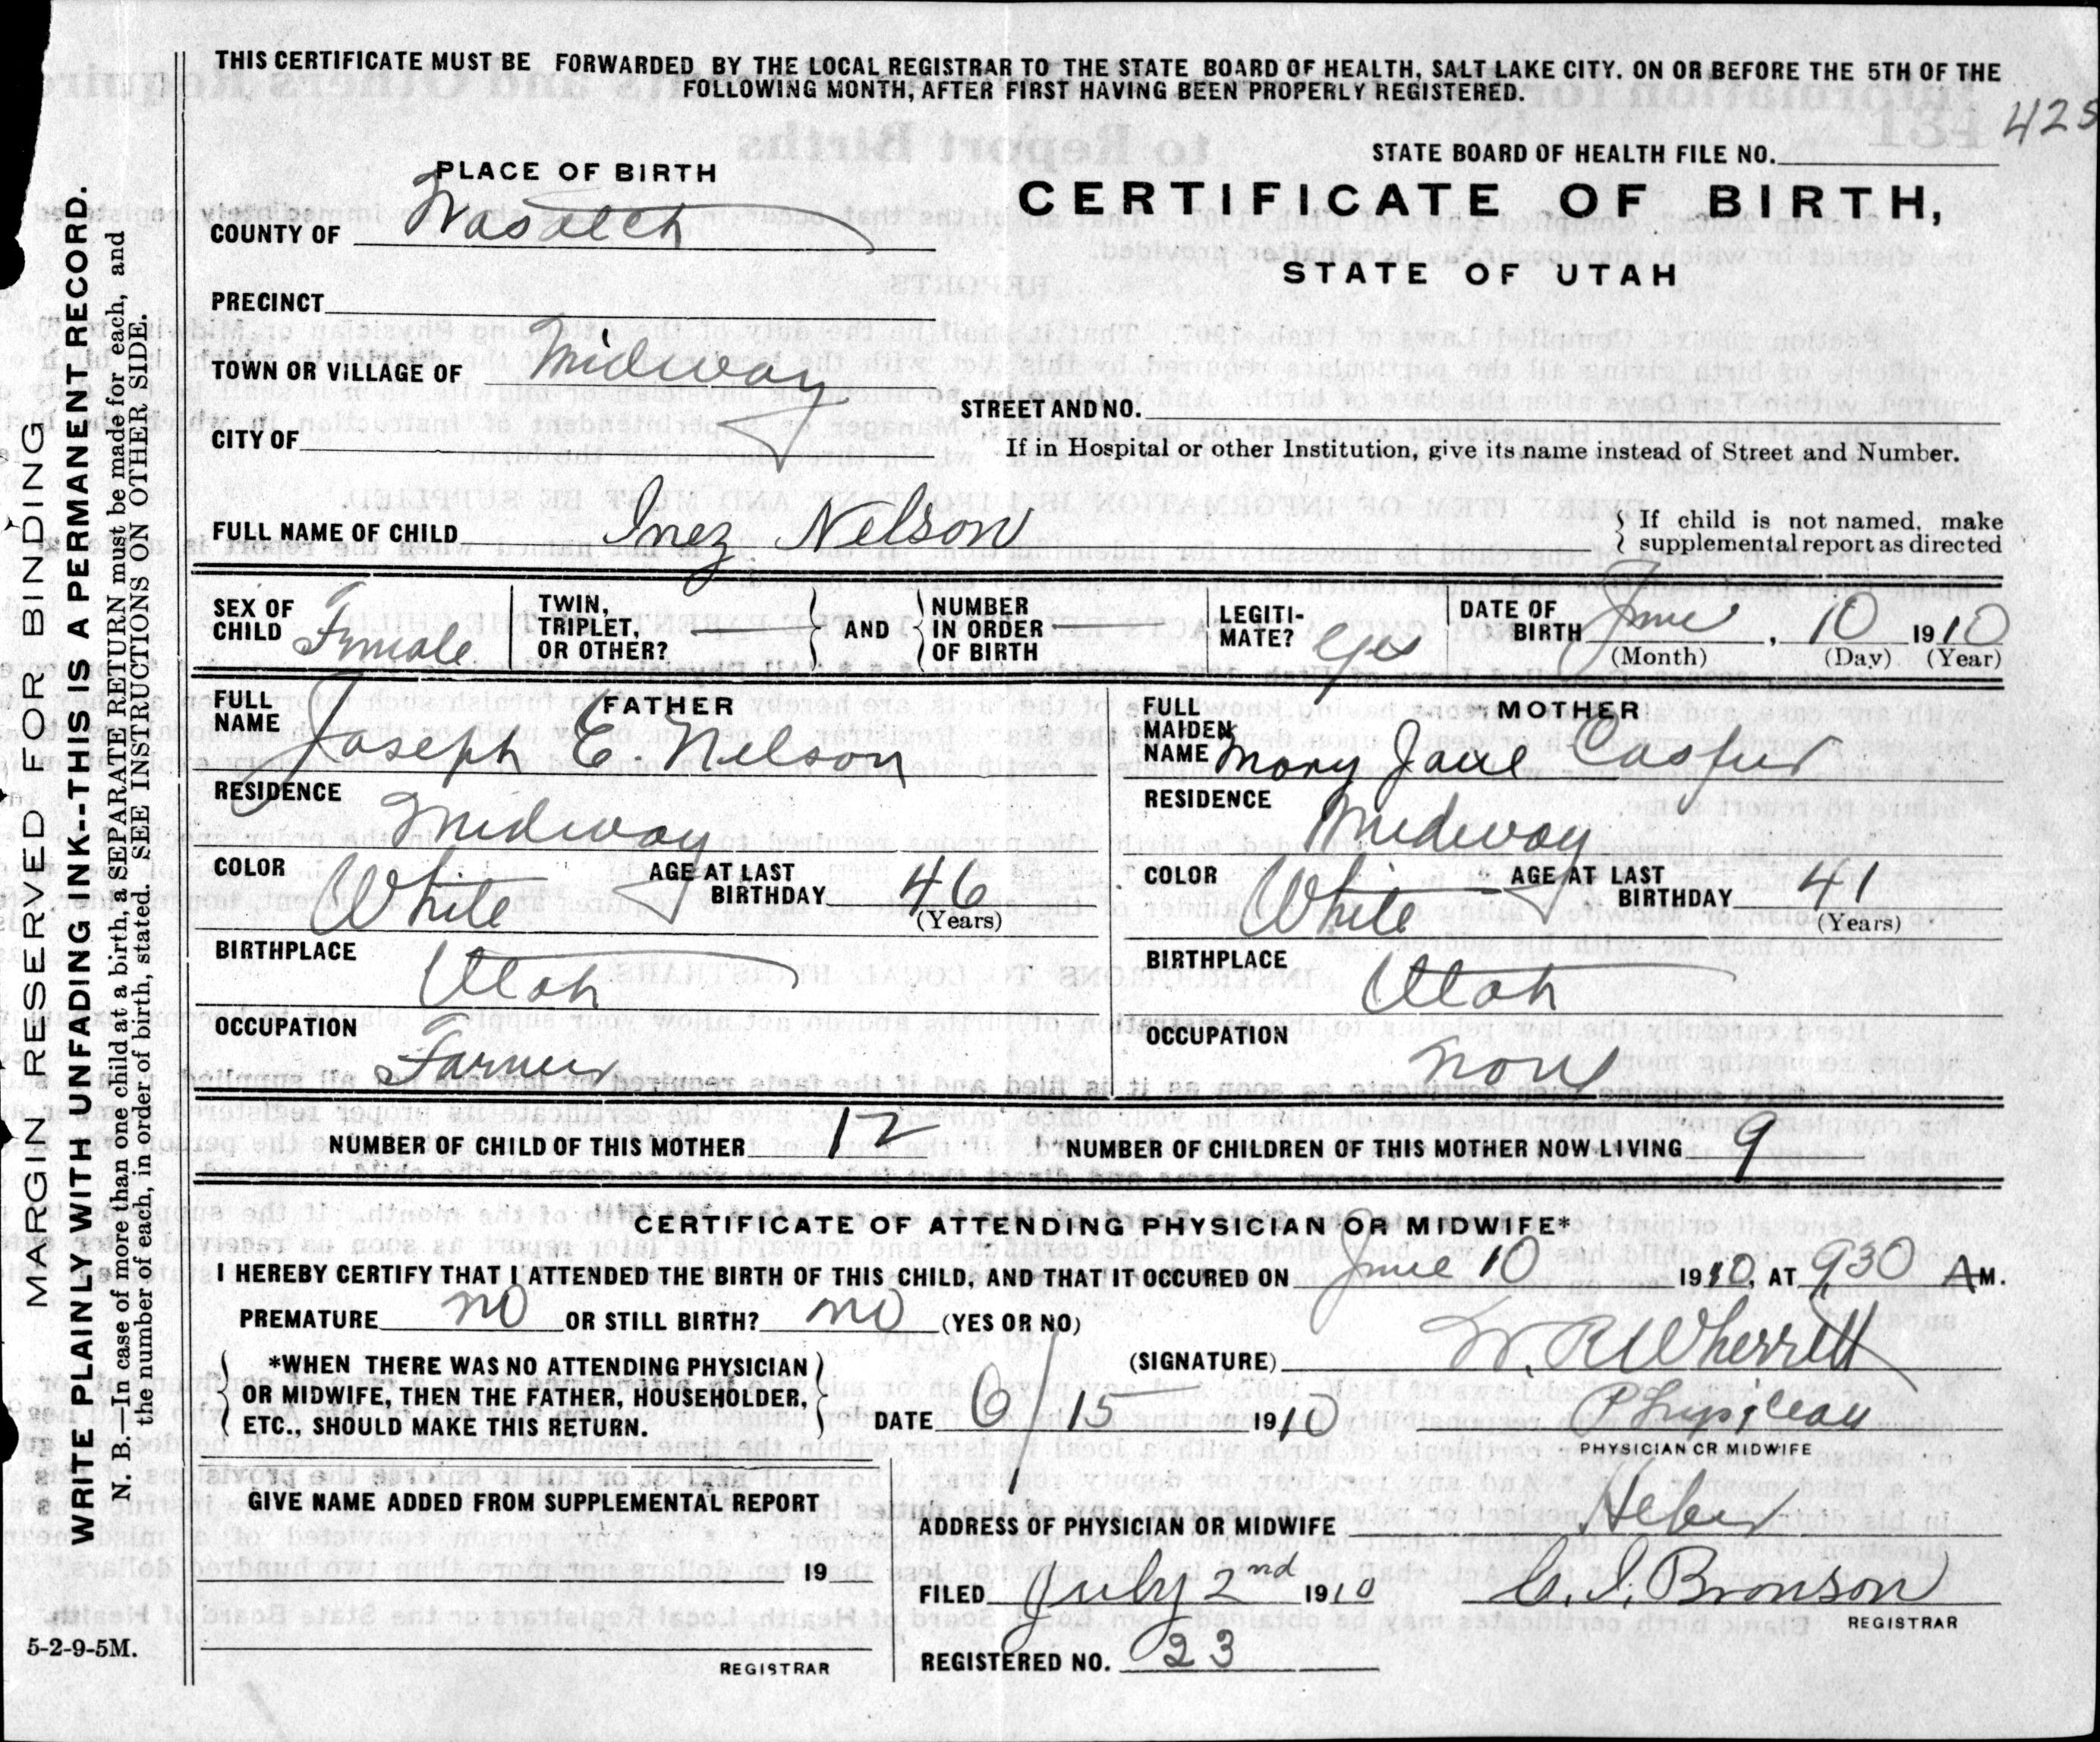 THIS CERTIFICATE MUST BE FORWARDED BY THE LOCAL REGISTRAR TO THE STATE BOARD OF HEALTH, SALT LAKE CITY, ON OR BEFORE THE 5TH OF THE
FOLLOWING MONTH, AFTER FIRST HAVING BEEN PROPERLY REGISTERED.
425
STATE BOARD OF HEALTH FILE NO.
PLACE OF BIRTH
CERTIFICATE OF BIRTH,
COUNTY OF Wasatch
STATE OF UTAH
PRECINCT
TOWN OR VILLAGE OF Midway
STREET AND NO.
CITY OF
If in Hospital or other Institution, give its name instead of Street and Number.
FULL NAME OF CHILD Inez Nelson
If child is not named, make
supplemental report as directed
SEX OF CHILD Female TWIN, TRIPLET, OR OTHER? AND NUMBER IN ORDER OF BIRTH LEGITI-MATE? Yes DATE OF BIRTH June, 10 1910
(Month) (Day) (Year)
FATHER
FULL NAME Joseph E. Nelson
RESIDENCE Midway
COLOR White AGE AT LAST BIRTHDAY 46
(Years)
BIRTHPLACE Utah
OCCUPATION Farmer
MOTHER
FULL MAIDEN NAME Mary Jane Casper
RESIDENCE Midway
COLOR White AGE AT LAST BIRTHDAY 41
(Years)
BIRTHPLACE Utah
OCCUPATION None
NUMBER OF CHILD OF THIS MOTHER 12 NUMBER OF CHILDREN OF THIS MOTHER NOW LIVING 9
CERTIFICATE OF ATTENDING PHYSICIAN OR MIDWIFE*
I HEREBY CERTIFY THAT I ATTENDED THE BIRTH OF THIS CHILD, AND THAT IT OCCURED ON June 10 1910, AT 930 AM.
PREMATURE no OR STILL BIRTH? no (YES OR NO)
*WHEN THERE WAS NO ATTENDING PHYSICIAN
OR MIDWIFE, THEN THE FATHER, HOUSEHOLDER,
ETC., SHOULD MAKE THIS RETURN.
(SIGNATURE) W. R. Wherritt
DATE 6/15 1910 Physician
PHYSICIAN OR MIDWIFE
GIVE NAME ADDED FROM SUPPLEMENTAL REPORT
19
REGISTRAR
ADDRESS OF PHYSICIAN OR MIDWIFE Heber
FILED July 2nd 1910 Bronson
REGISTRAR
REGISTERED NO. 23
5-2-9-5M.
MARGIN RESERVED FOR BINDING
WRITE PLAINLY WITH UNFADING INK--THIS IS A PERMANENT RECORD.
N. B.—In case of more than one child at a birth, a SEPARATE RETURN must be made for each, and
the number of each, in order of birth, stated. SEE INSTRUCTIONS ON OTHER SIDE.